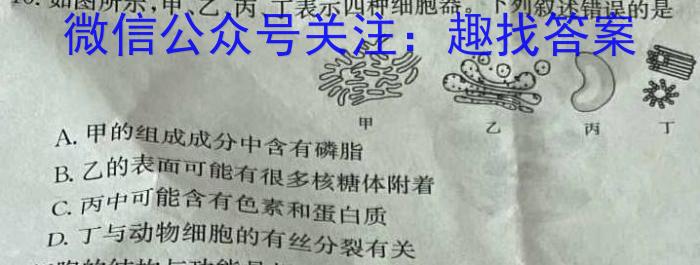 如图所示,甲、乙、丙、丁表示四种细胞器。下列叙述错误的是
微信公众号关注：趣找答案
甲 乙 丙 丁
A. 甲的组成成分中含有磷脂
B. 乙的表面可能有很多核糖体附着
C. 丙中可能含有色素和蛋白质
D. 丁与动物细胞的有丝分裂有关